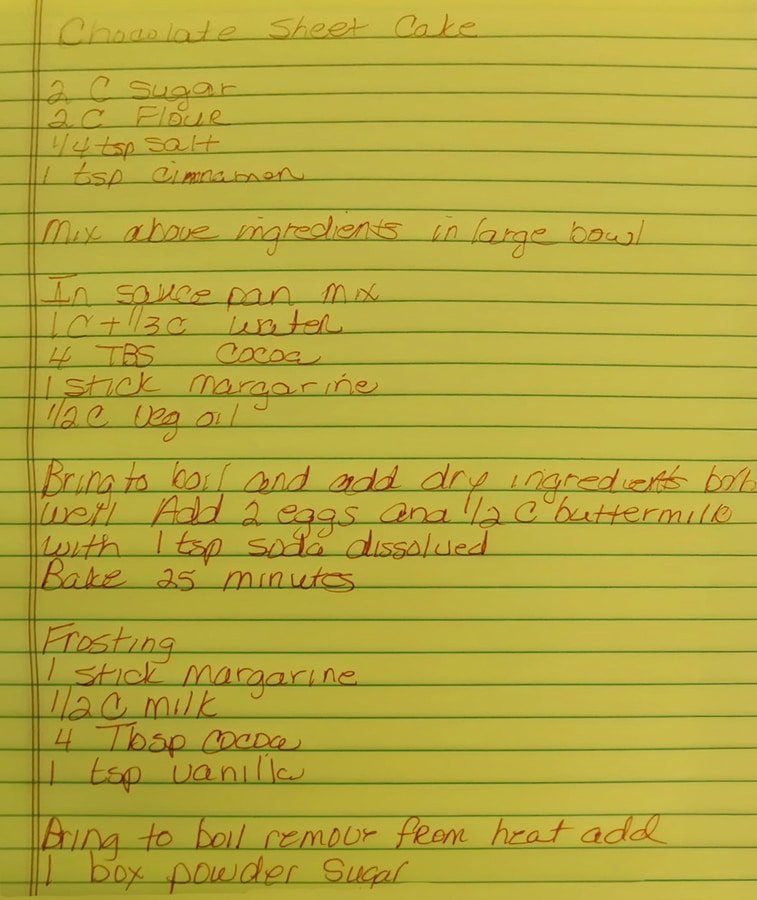 Chocolate Sheet Cake
2 C Sugar
2 C Flour
1/4 tsp salt
1 tsp cinnamon
Mix above ingredients in large bowl
In sauce pan mix
1 C + 1/3 C water
4 TBS cocoa
1 stick margarine
1/2 C veg oil
Bring to boil and add dry ingredients
well Add 2 eggs and 1/2 C buttermilk
with 1 tsp soda dissolved
Bake 25 minutes
Frosting
1 stick margarine
1/2 C milk
4 Tbsp cocoa
1 tsp vanilla
Bring to boil remove from heat add
1 box powder sugar